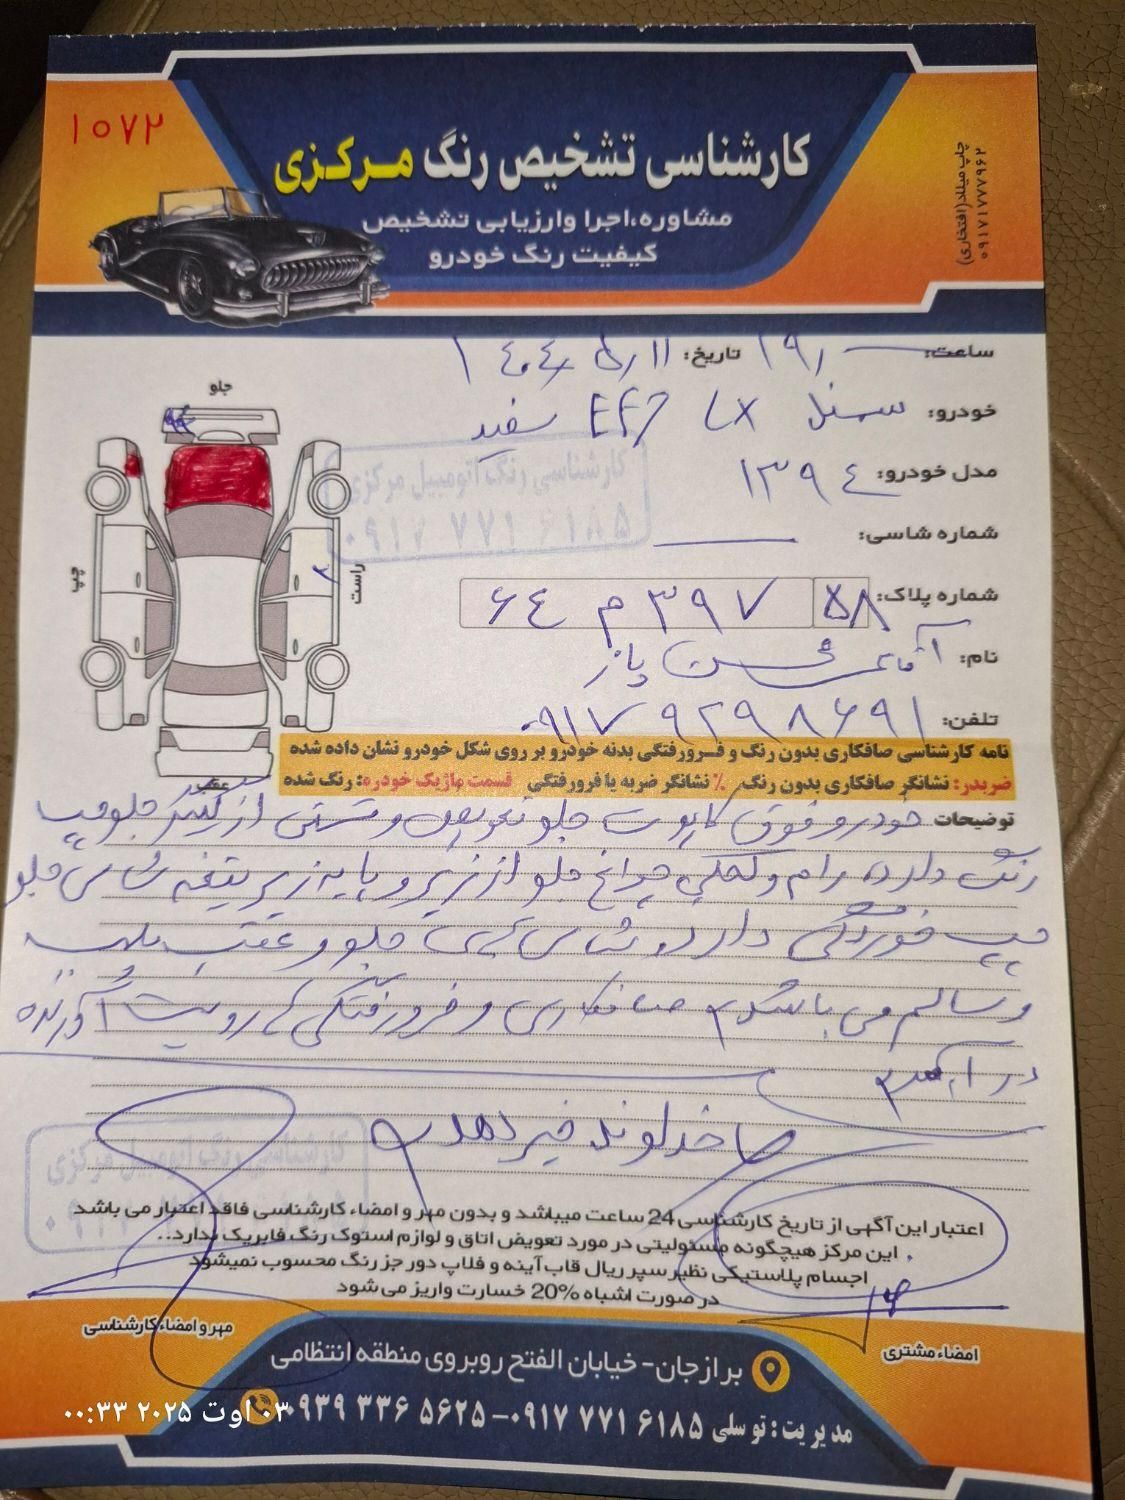 ۱۰۷۲
کارشناسی تشخیص رنگ مرکزی
مشاوره،اجرا وارزیابی تشخیص
کیفیت رنگ خودرو
چاپ میلاد(افتخاری)
۰۹۱۷۱۷۷۷۹۶۲
ساعت: ۱۹ تاریخ: ۱۴۰۴/۵/۱۱
خودرو: سمند LX EF7 سفید
مدل خودرو: ۱۳۹۴
شماره شاسی:
شماره پلاک: ۵۸ ۳۹۷ م ۶۴
نام: آقای
تلفن: ۰۹۱۷۹۲۹۸۶۹۱
جلو
چپ
راست
عقب
کارشناسی رنگ اتومبیل مرکزی
۰۹۱۷ ۷۷۱ ۶۱۸۵
نامه کارشناسی صافکاری بدون رنگ و فرورفتگی بدنه خودرو بر روی شکل خودرو نشان داده شده
ضربدر: نشانگر صافکاری بدون رنگ ٪ نشانگر ضربه یا فرورفتگی قسمت ماژیک خورده: رنگ شده
توضیحات خودرو فوق کاپوت جلو تعویض و قسمتی از گلگیر جلو چپ
رنگ دارد، رام و کحلی چراغ جلو از زیر و پایه زیر سینه شاسی جلو
چپ خوردگی دارد، شاسی های جلو و عقب پلمپ
و سالم می باشد صافکاری و فرورفتگی رویت
در
خداوند خیر دهد
کارشناسی رنگ اتومبیل مرکزی
اعتبار این آگهی از تاریخ کارشناسی 24 ساعت میباشد و بدون مهر و امضاء کارشناسی فاقد اعتبار می باشد
. این مرکز هیچگونه مسئولیتی در مورد تعویض اتاق و لوازم استوک رنگ فابریک ندارد..
اجسام پلاستیکی نظیر سپر ریال قاب آینه و فلاپ دور جز رنگ محسوب نمیشود
در صورت اشباه 20% خسارت واریز می شود
مهر و امضاء کارشناسی
امضاء مشتری
برازجان- خیابان الفتح روبروی منطقه انتظامی
مدیریت: توسلی ۰۹۱۷ ۷۷۱ ۶۱۸۵-۰۹۳۹ ۳۳۶ ۵۶۲۵
۰۳ اوت ۲۰۲۵ ۰۰:۳۳